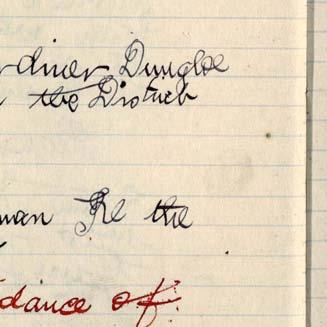 rdiner Dungloe
the District
man Re the
dance of